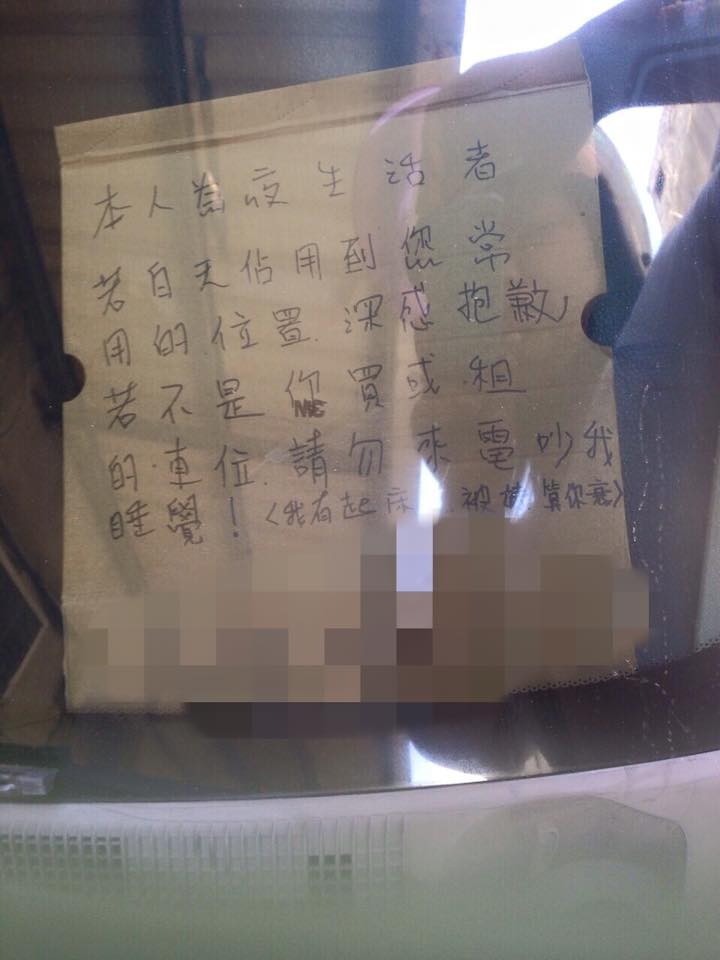 本人為夜生活者
若白天佔用到您常
用的位置.深感抱歉
若不是你買或租
的車位.請勿來電吵我
睡覺！〈我有起床 被 算你衰〉